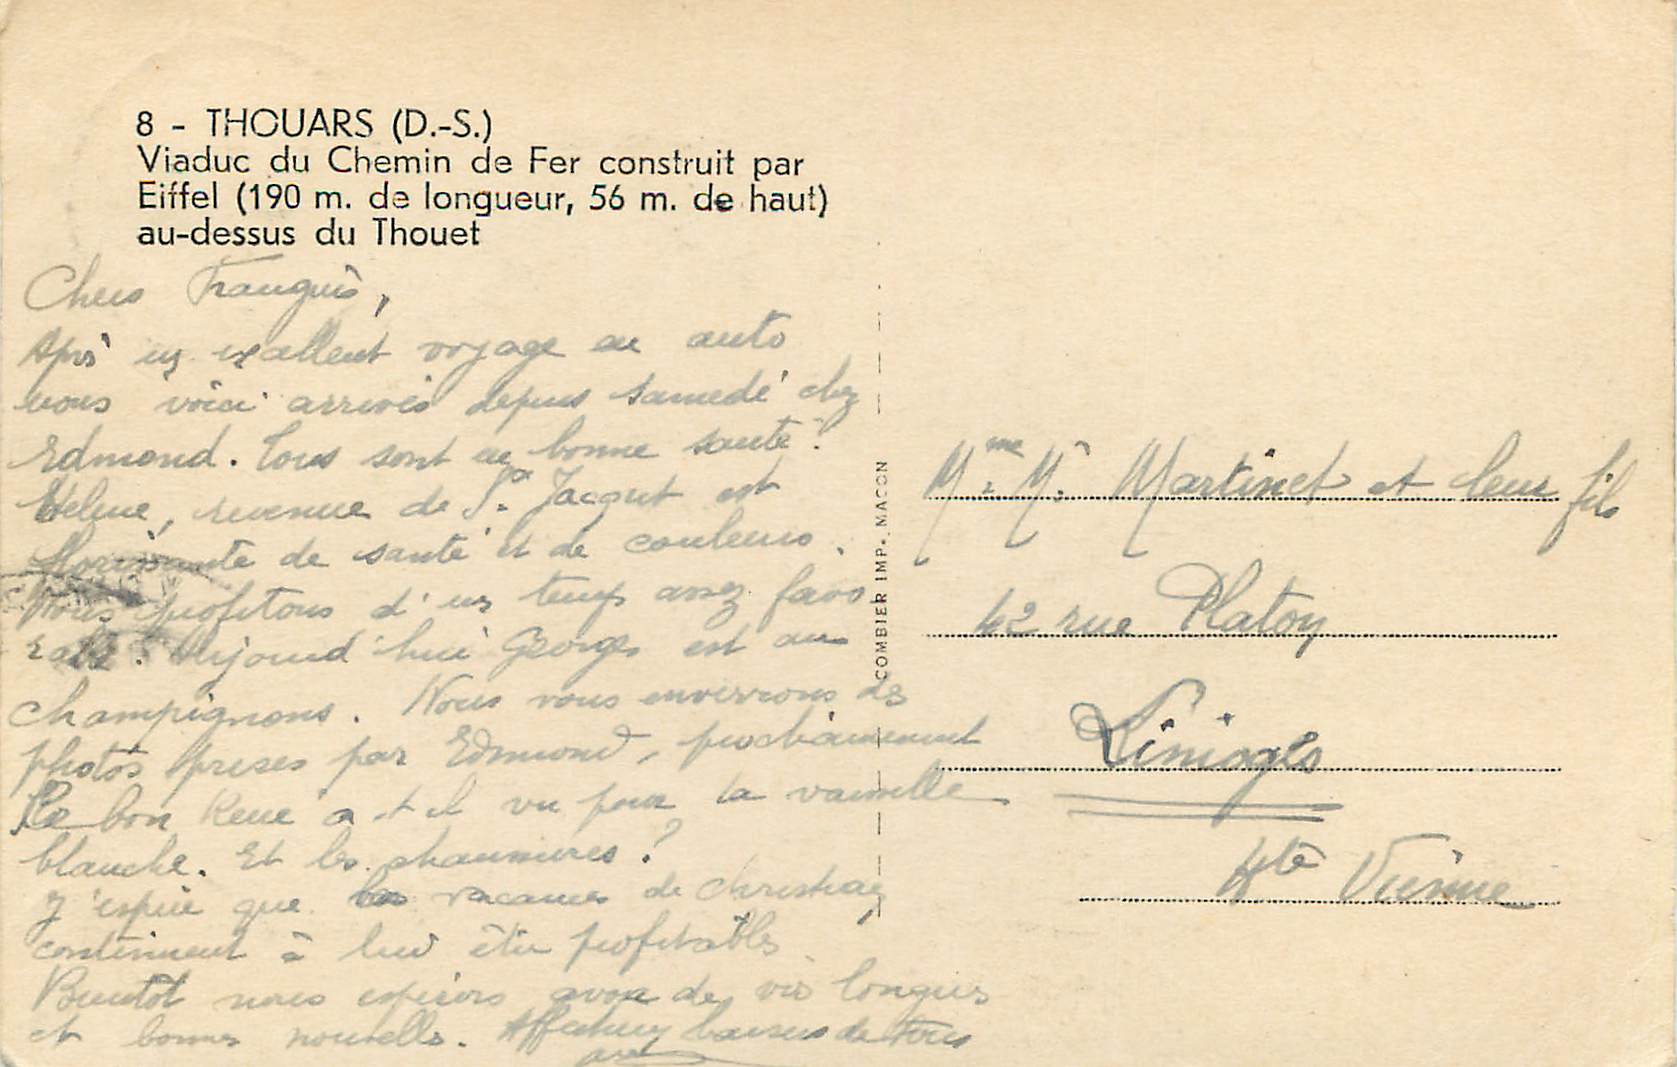 8 - THOUARS (D.-S.)
Viaduc du Chemin de Fer construit par
Eiffel (190 m. de longueur, 56 m. de haut)
au-dessus du Thouet
Chers
Après un excellent voyage en auto
nous voici arrivés depuis samedi chez
Edmond. Tous sont en bonne santé.
Hélène, revenue de St Jacquet est
florissante de santé et de couleurs.
Nous profitons d'un temps assez favo
rable. Aujourd'hui Georges est aux
champignons. Nous vous enverrons des
photos prises par Edmond, prochainement
Le bon René a-t-il vu pour la vaisselle
blanche. Et les chaussures ?
J'espère que les vacances de Christian
continuent à lui être profitables
Bientôt nous espérons avoir de vos longues
et bonnes nouvelles. Affectueux baisers de tous
COMBIER IMP. MACON
Mme M. Martinet et leur fils
42 rue Platon
Limoges
Hte Vienne